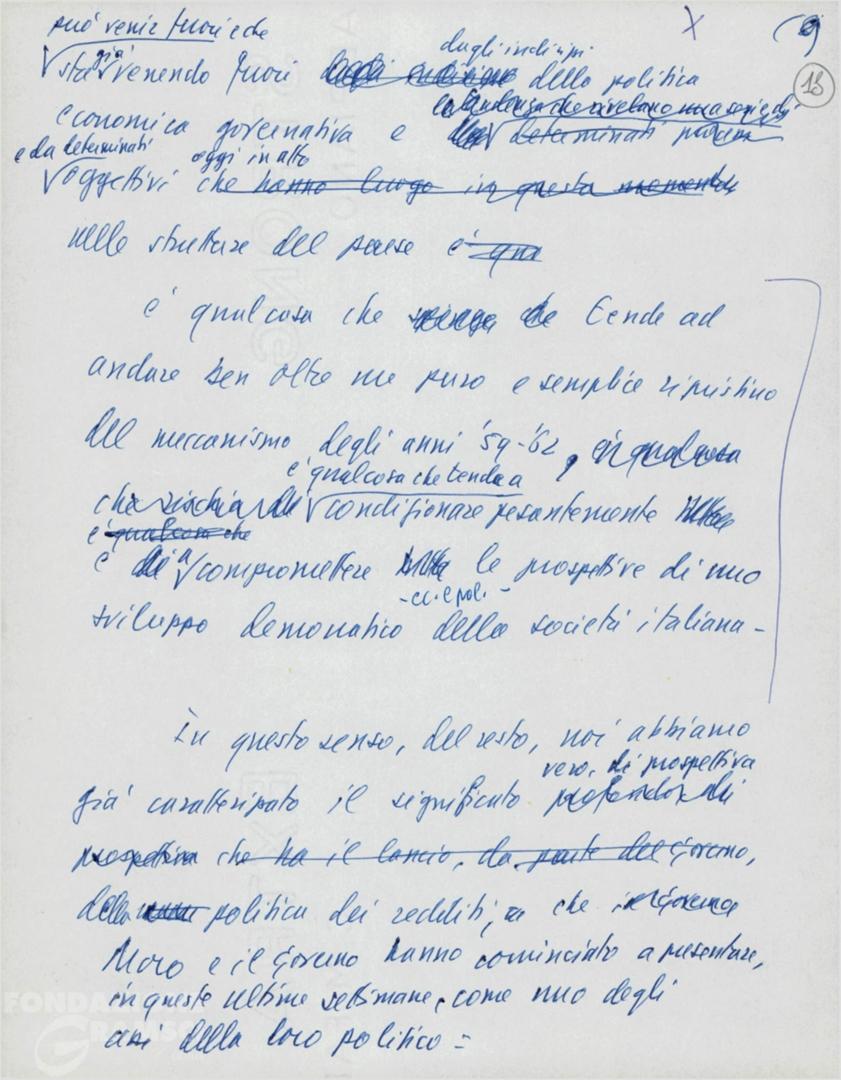 può venir fuori e che
già dagli indirizzi
sta venendo fuori della politica
la tendenza che rivelano una serie di
economica governativa e determinati
e da determinati oggi in atto
oggettivi che hanno luogo in questo momento
nelle strutture del paese è
è qualcosa che tende ad
andare ben oltre un puro e semplice ripristino
del meccanismo degli anni '59-'62, è qualcosa
è qualcosa che tenda a
che rischia di condizionare pesantemente
è qualcosa che
e di a compromettere tutta le prospettive di uno
- ec. e pol. -
sviluppo democratico della società italiana -
In questo senso, del resto, noi abbiamo
vero, di prospettiva
già caratterizzato il significato profondo di
prospettiva che ha il lancio, da parte del Governo,
della politica dei redditi, che il Governo
Moro e il Governo hanno cominciato a presentare,
in queste ultime settimane, come uno degli
assi della loro politica =
(9)
13
FONDAZIONE
GRAMSCI